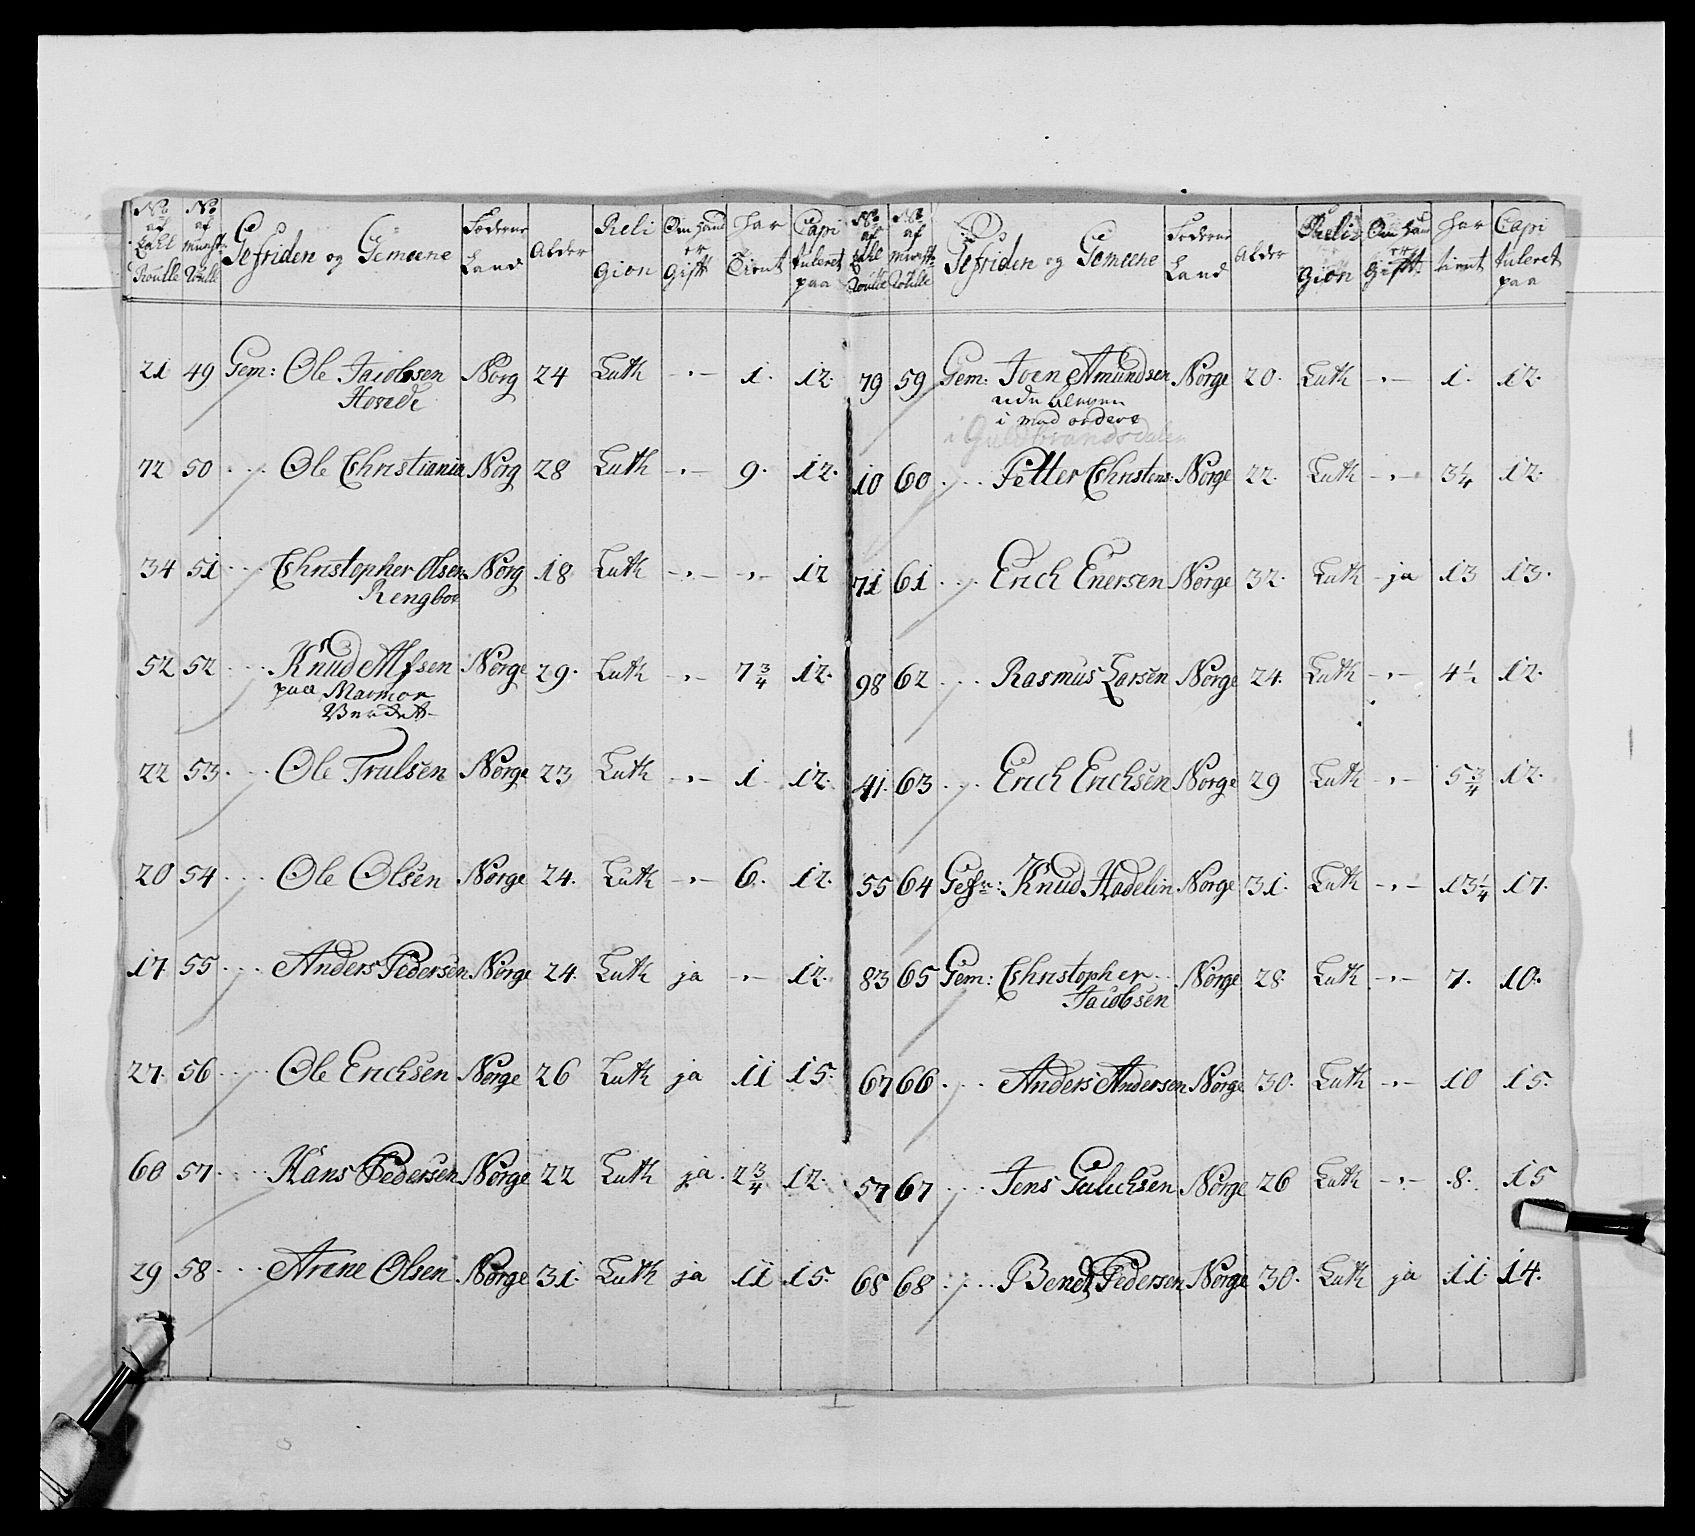 No af Zahl Roulle | No af Munst: Roulle | Gefriden og Gemeene | Föderne Land | Alder | Religion | Om hand er Gifft | har Tient | Capituleret paa
21 49 Gem: Ole Jacobsen Norg 24 Luth -,- 1. 12.
72 50 Ole Christiania Norg 28 Luth -,- 9. 12.
34 51 Christopher Olsen Norg 18 Luth -,- -,- 12
Rengboe
52 52 Knud Alfsen Norge 29. Luth -,- 7 3/4 12.
paa Marmor
22 53 Ole Trulsen Norge 23 Luth -,- 1 12.
20 54 Ole Olsen Norge 24. Luth -,- 6. 12.
17 55 Anders Pedersen Norge 24. Luth ja -,- 12.
27. 56 Ole Erichsen Norge 26 Luth ja 11 15.
60 57 Hans Pedersen Norge 22 Luth ja 2 3/4 12.
29 58 Arene Olsen Norge 31. Luth ja 11 15.
No af Zahl Roulle | No af Munst: Roulle | Gefriden og Gemeene | Föderne Land | Alder | Religion | Om hand er Gifft | har tient | Capituleret paa
79 59 Gem: Joen Amundsen Norge 20. Luth -,- 1. 12.
i mod ordere
i Guldbrandsdalen
10 60 Petter Christens: Norge 22. Luth -,- 3 1/4 12.
71 61 Erich Enersen Norge 32. Luth ja 13 13.
98 62 Rasmus Larsen Norge 24. Luth -,- 4 1/2 12.
41. 63 Erich Erichsen Norge 29 Luth -,- 5 3/4 12.
55 64 Gefr: Knud Hadelin Norge 31. Luth -,- 13 1/4 17.
83 65 Gem: Christopher Norge 28. Luth -,- 7. 10.
Jacobsen
67 66 Anders Andersen Norge 30. Luth -,- 10 15.
57 67 Jens Gulichsen Norge 26 Luth -,- 8. 15
68 68 Bendt Pedersen Norge 30. Luth ja 11. 14.